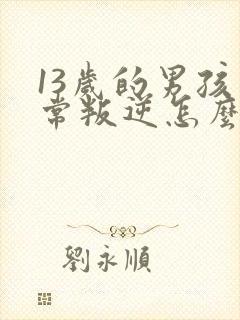 13歲的男孩
常叛逆怎麼
劉永順